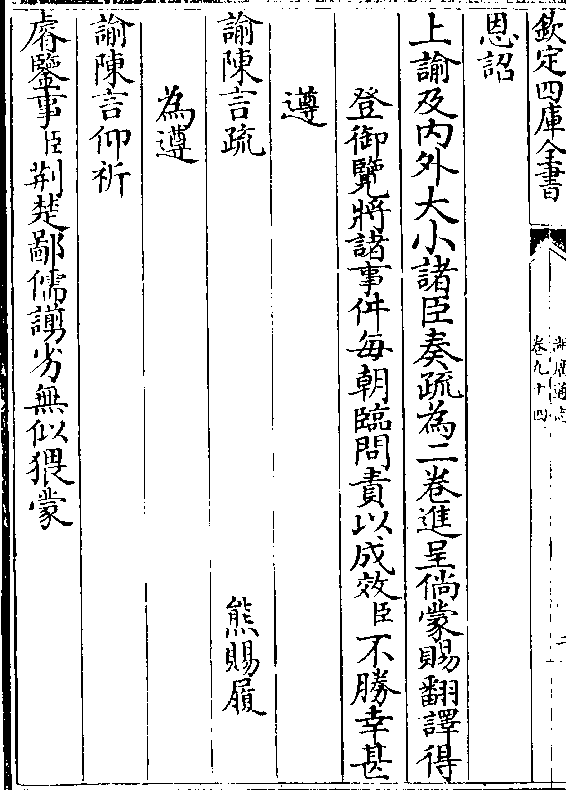 欽定四庫全書
湖廣通志
卷九十四
二
恩詔
上諭及内外大小諸臣奏疏為二卷進呈倘蒙賜翻譯得
登御覽將諸事件每朝臨問責以成效臣不勝幸甚
遵
諭陳言疏
熊賜履
為遵
諭陳言仰祈
睿鑒事臣荆楚鄙儒譾劣無似猥蒙